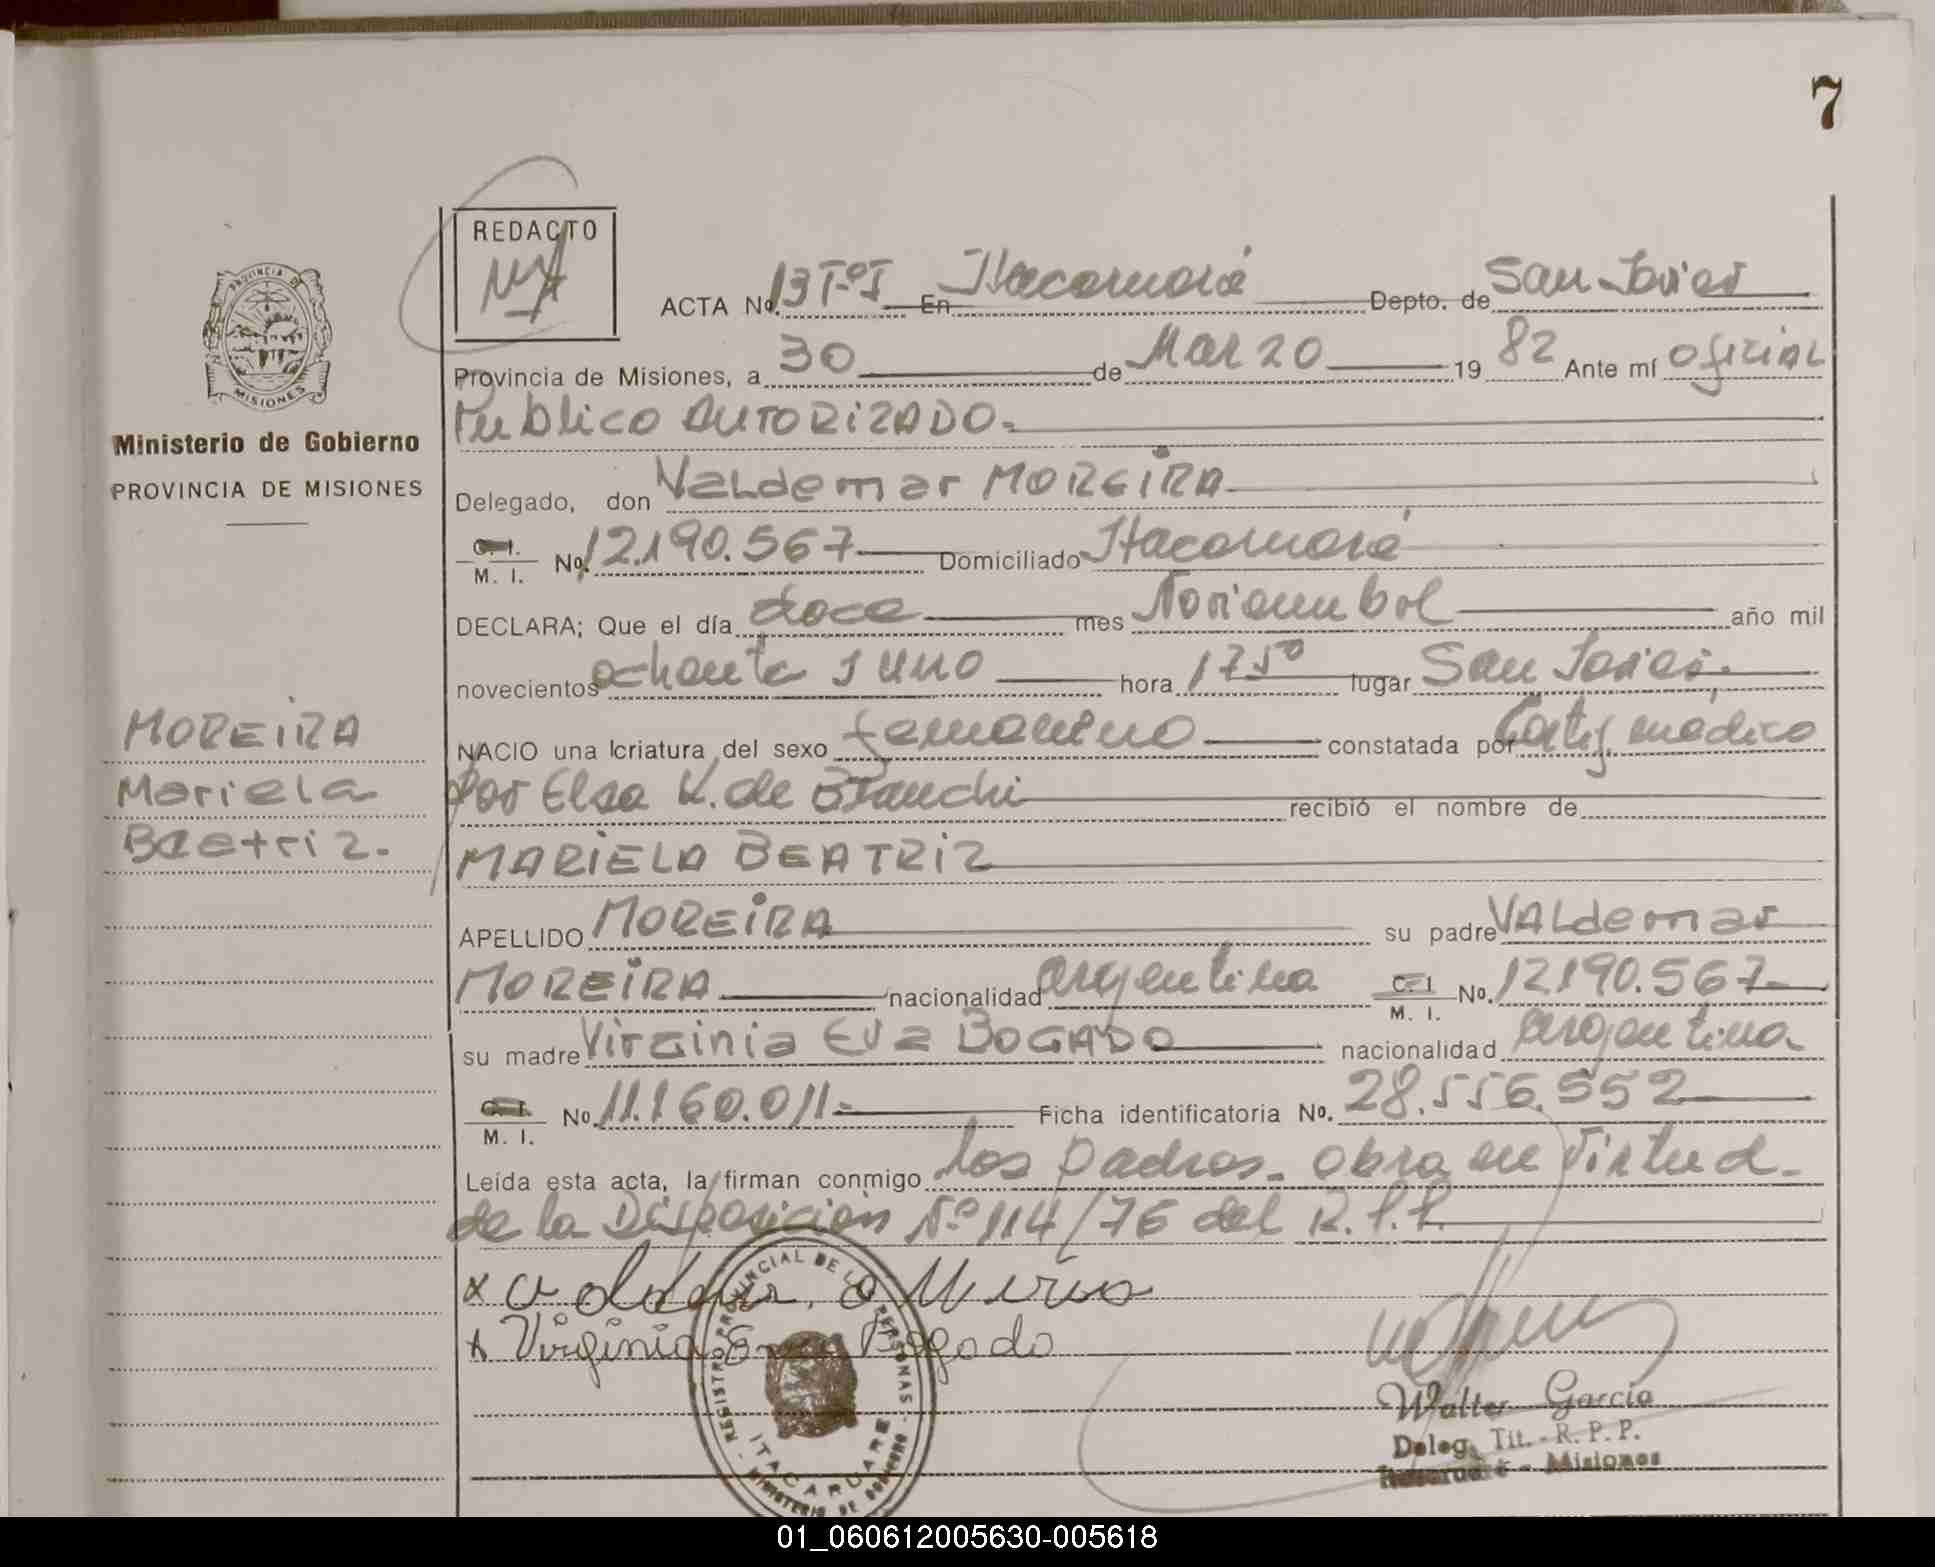 7
REDACTO
ACTA No. 13 Tº I En Itacaruaré Depto. de San Javier
Provincia de Misiones, a 30 de Marzo 19 82 Ante mí oficial
Publico AUTORIZADO.
Delegado, don Valdemar MOREIRA
C. I. M. I. No. 12.190.567 Domiciliado Itacaruaré
DECLARA; Que el día doce mes Noviembre año mil
novecientos ochenta y uno hora 17 50 lugar San Javier,
NACIO una criatura del sexo femenino constatada por Certif. médico
por Elsa K. de Bianchi recibió el nombre de
MARIELA BEATRIZ
APELLIDO MOREIRA su padre VALdemar
MOREIRA nacionalidad argentina C. I. M. I. No. 12190.567
su madre Virginia Eva BOGADO nacionalidad argentina
C. I. M. I. No. 11.160.011 Ficha identificatoria No. 28.556.552
Leída esta acta, la firman conmigo los padres. obra en Virtud
de la Disposición Nº 114/76 del R.P.P.
Virginia Eva Bogado
REGISTRO PROVINCIAL DE LAS PERSONAS
ITACARUARE
MINISTERIO DE GOBIERNO
Walter García
Deleg. Tit. - R. P. P.
Itacaruaré - Misiones
PROVINCIA DE
MISIONES
Ministerio de Gobierno
PROVINCIA DE MISIONES
MOREIRA
Mariela
Beatriz.
01_060612005630-005618